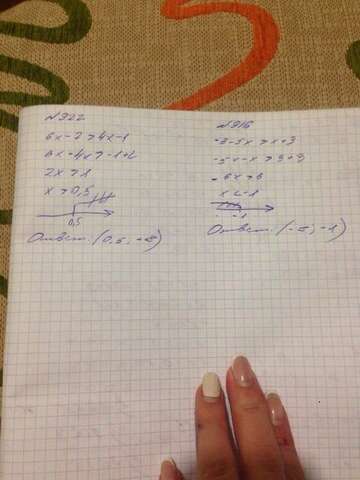 №922
6x-2>4x-1
6x-4x>-1+2
2x>1
x>0,5
0,5
Ответ: (0,5; +∞)
№916
-3-5x>x+3
-5x-x>3+3
-6x>6
x<-1
-1
Ответ: (-∞; -1)